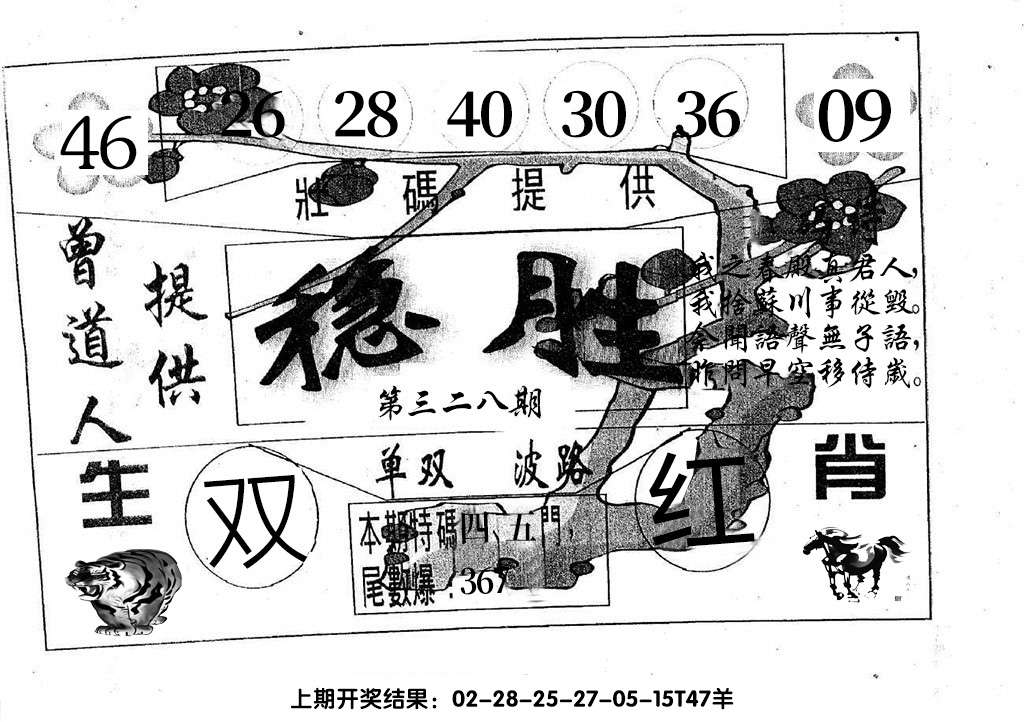 46 26 28 40 30 36 09
壯碼提供
曾道人
提供
稳胜
第三二八期
我之春殿真君人，
我捨蘇川事從毀。
余聞語聲無子語，
昨問早空移侍歲。
生肖
单双 波路
双
红
本期特碼四、五門，
尾數爆：367
上期开奖结果：02-28-25-27-05-15T47羊